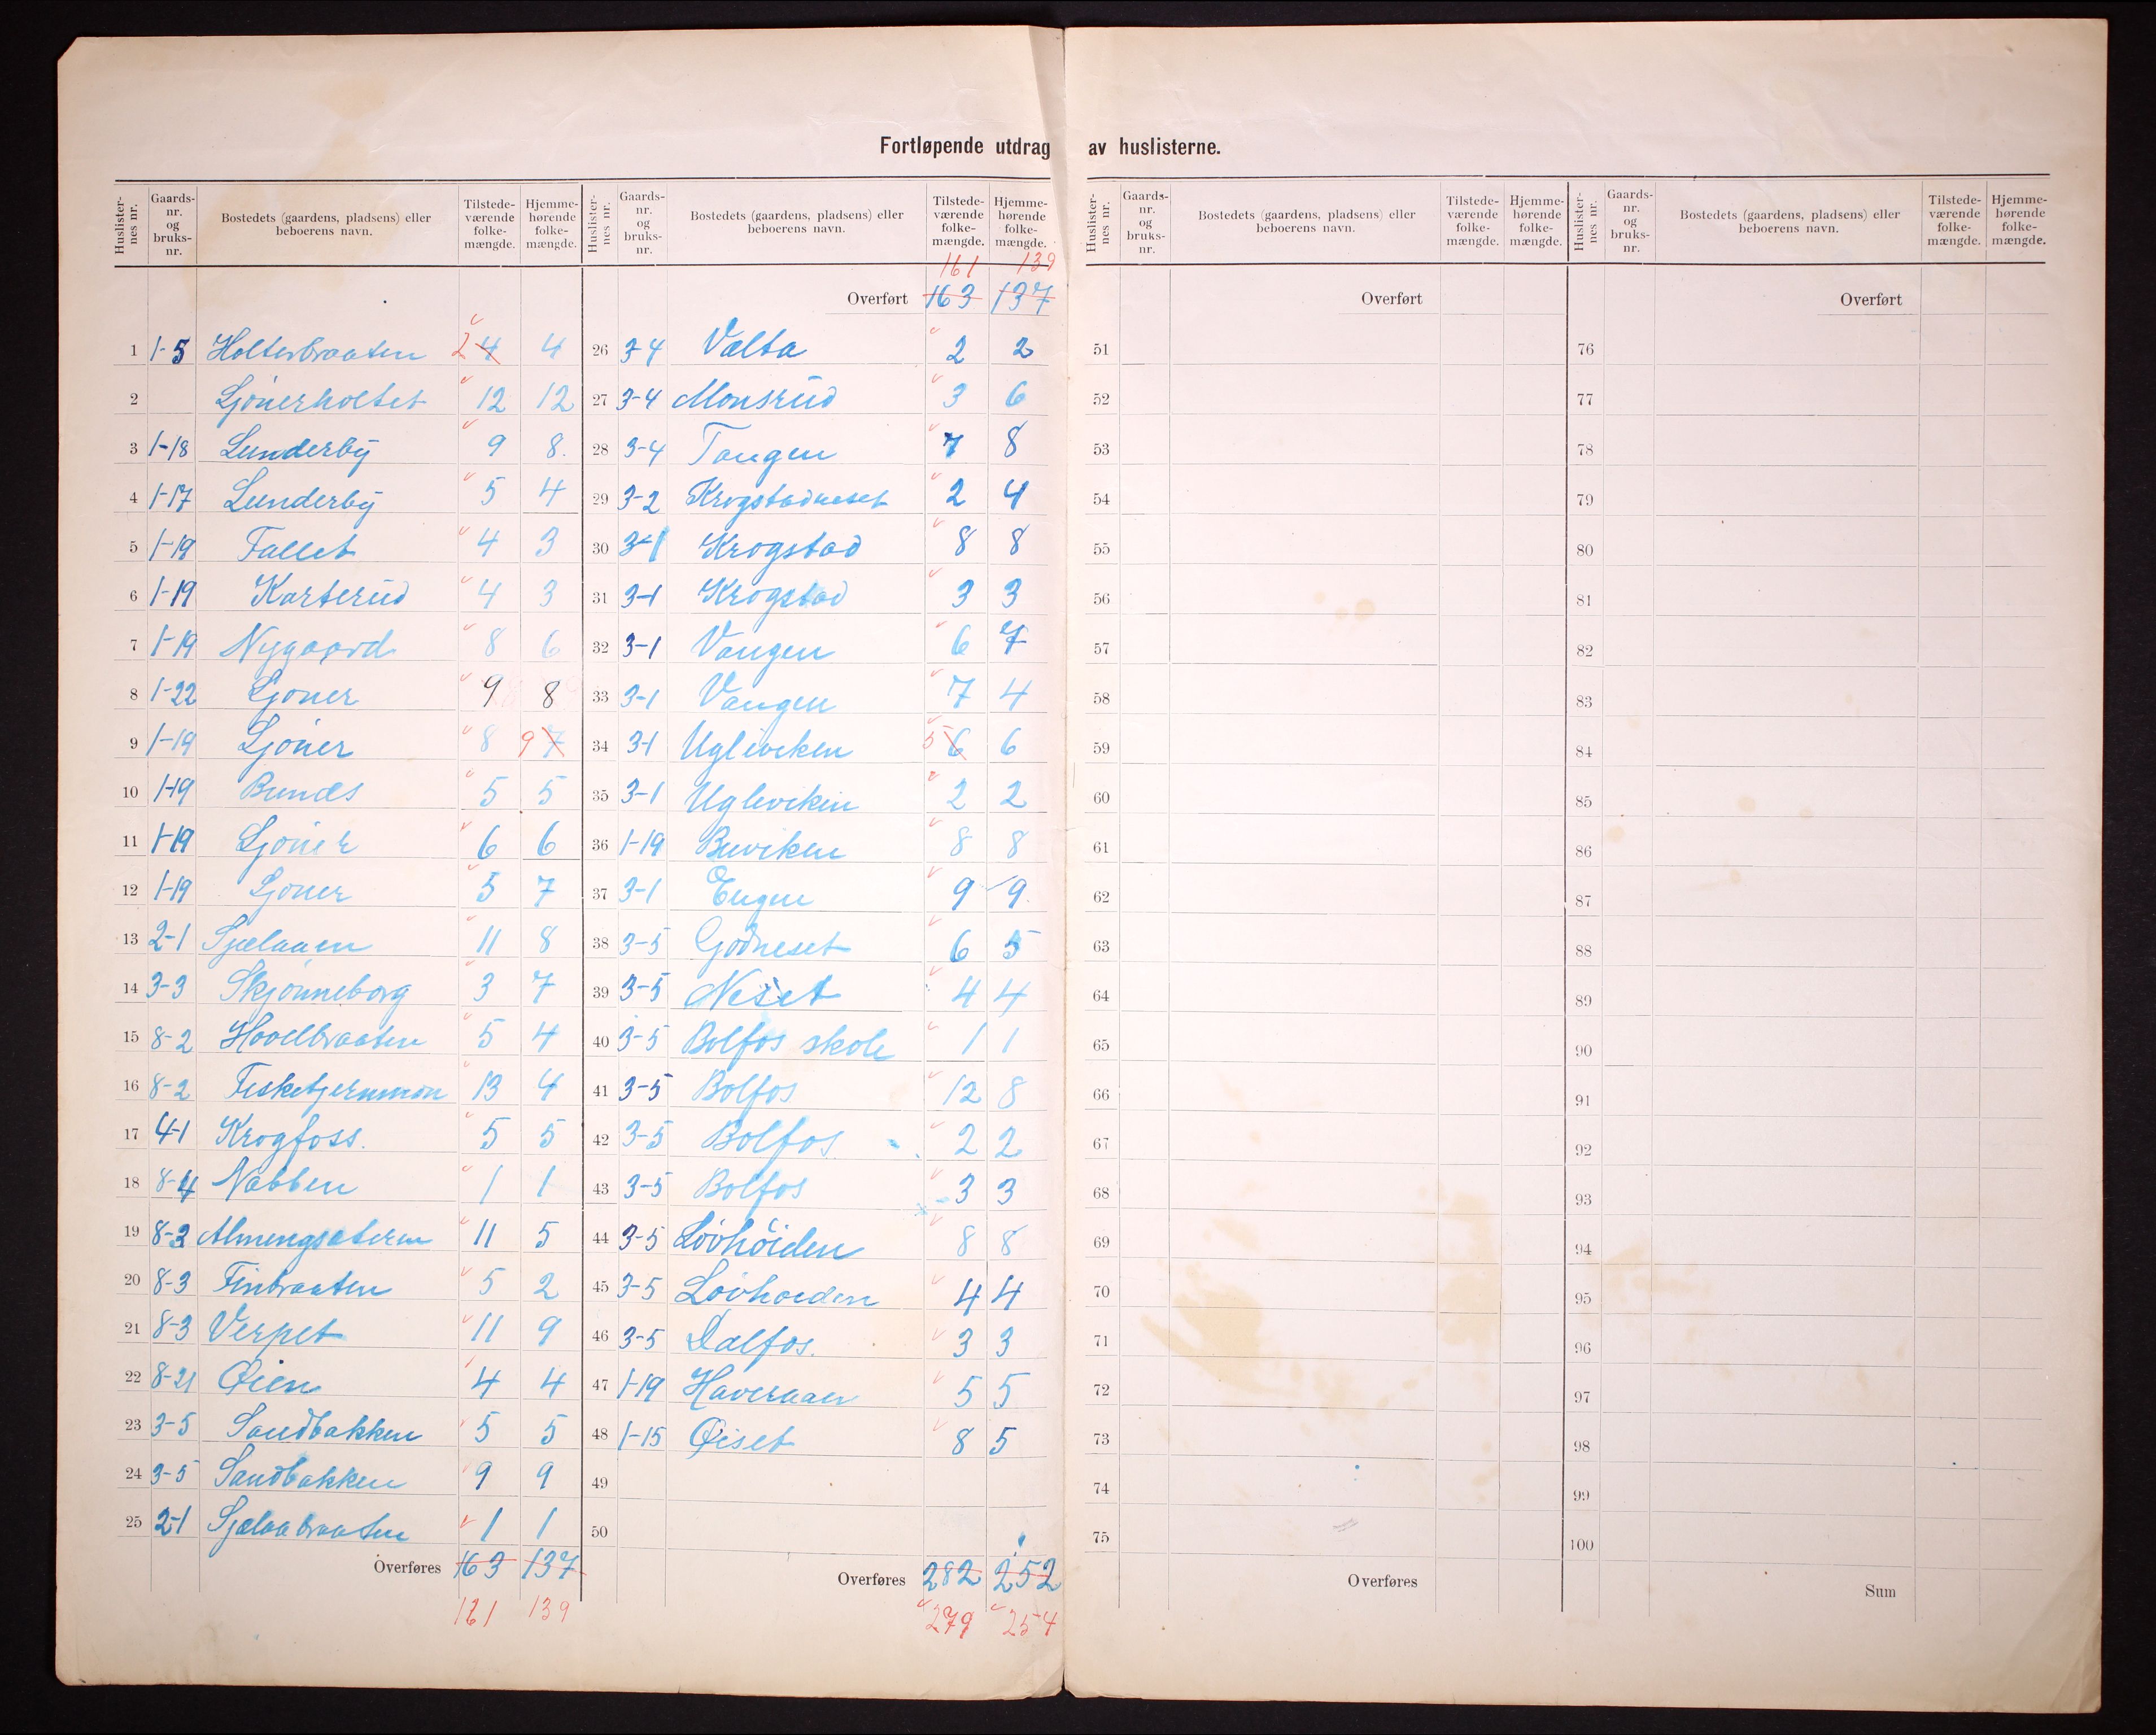 Fortløpende utdrag av huslisterne.
Huslister-nes nr. Gaards-nr. og bruks-nr. Bostedets (gaardens, pladsens) eller beboerens navn. Tilstede-værende folke-mængde. Hjemme-hørende folke-mængde.
1 1-5 Holterbraaten 4 2 4
2 Ljönerholtet 12 12
3 1-18 Lunderby 9 8.
4 1-17 Lunderby 5 4
5 1-19 Fallet 4 3
6 1-19 Karterud 4 3
7 1-19 Nygaard 8 6
8 1-22 Ljoner 9 8
9 1-19 Ljöner 8 7 9
10 1-19 Bunds 5 5
11 1-19 Ljöner 6 6
12 1-19 Ljoner 5 7
13 2-1 Sjælaaen 11 8
14 3-3 Skjönneborg 3 7
15 8-2 Hooelbraaten 5 4
16 8-2 Fisketjernmon 13 4
17 4-1 Krogfoss. 5 5
18 8-4 Nabben 1 1
19 8-3 11 5
20 8-3 Finbraaten 5 2
21 8-3 Verpet 11 9
22 8-21 Øien 4 4
23 3-5 Sandbakken 5 5
24 3-5 Sandbakken 9 9
25 2-1 Sjælaabraaten 1 1
Overføres 163 137
161 139
Huslister-nes nr. Gaards-nr. og bruks-nr. Bostedets (gaardens, pladsens) eller beboerens navn. Tilstede-værende folke-mængde. Hjemme-hørende folke-mængde.
161 139
Overført 163 137
26 3-4 Valta 2 2
27 3-4 Monsrud 3 6
28 3-4 Tangen 7 8
29 3-2 Krogstadneset 2 4
30 3-1 Krogstad 8 8
31 3-1 Krogstad 3 3
32 3-1 Vangen 6 7
33 3-1 Vangen 7 4
34 3-1 Ugleviken 6 5 6
35 3-1 Ugleviken 2 2
36 1-19 Buviken 8 8
37 3-1 Engen 9 9
38 3-5 Godneset 6 5
39 3-5 Neset 4 4
40 3-5 Bolfos skole 1 1
41 3-5 Bolfos 12 8
42 3-5 Bolfos 2 2
43 3-5 Bolfos 3 3
44 3-5 Lövhöiden 8 8
45 3-5 Lövhoiden 4 4
46 3-5 Dalfos. 3 3
47 1-19 Haveraaen 5 5
48 1-15 Øiset 8 5
49
50
Overføres 282 252
279 254
Huslister-nes nr. Gaards-nr. og bruks-nr. Bostedets (gaardens, pladsens) eller beboerens navn. Tilstede-værende folke-mængde. Hjemme-hørende folke-mængde.
Overført
51
52
53
54
55
56
57
58
59
60
61
62
63
64
65
66
67
68
69
70
71
72
73
74
75
Overføres
Huslister-nes nr. Gaards-nr. og bruks-nr. Bostedets (gaardens, pladsens) eller beboerens navn. Tilstede-værende folke-mængde. Hjemme-hørende folke-mængde.
Overført
76
77
78
79
80
81
82
83
84
85
86
87
88
89
90
91
92
93
94
95
96
97
98
99
100
Sum